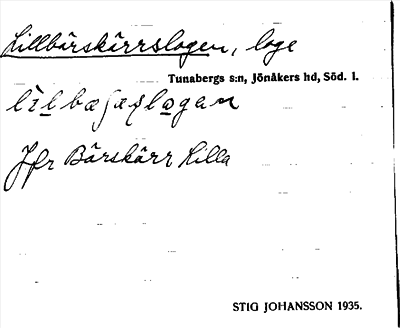 Lillbärskärrslogen, loge
Tunabergs s:n, Jönåkers hd, Söd. l.
Jfr Bärskärr Lilla
STIG JOHANSSON 1935.